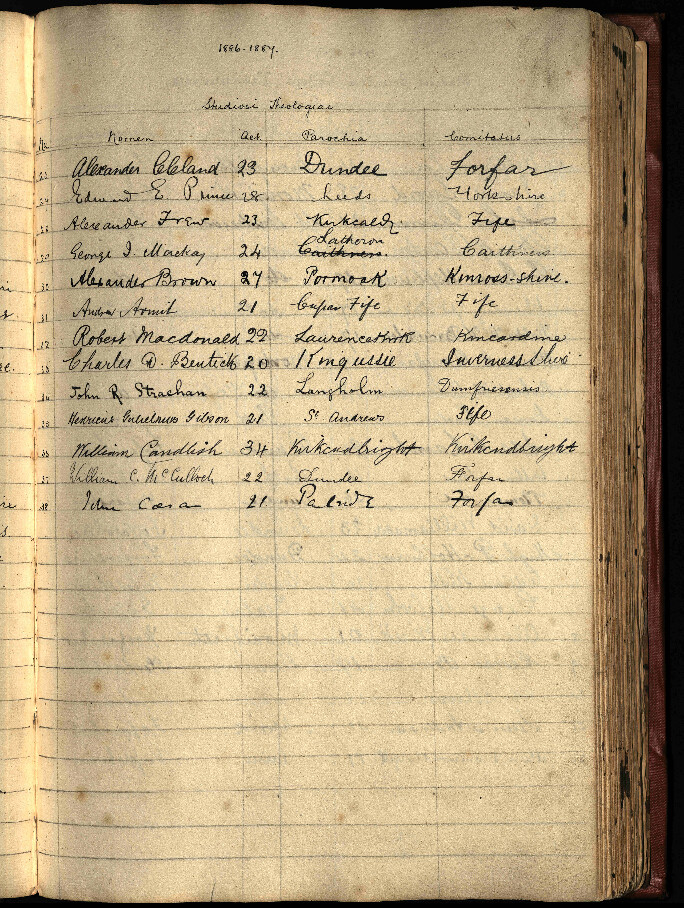 1886-1887.
Studiosi Theologiae
No. Nomen Aet. Parochia Comitatus
23 Alexander Cleland 23 Dundee Forfar
24 Edmund E. Prince 28 Leeds Yorkshire
Alexander Frew 23 Kirkcaldy Fife
Latheron
George I. Mackay 24 Caithness Caithness
Alexander Brown 27 Portmoak Kinross-shire.
31 Andrew Armit 21 Cupar Fife Fife
Robert Macdonald 22 Laurencekirk Kincardine
Charles D. Bentick 20 Kingussie Inverness Shire
34 John R. Strachan 22 Langholm Dumfriesensis
35 Henricus Gulielmus Gibson 21 St Andrews Fife
36 William Candlish 34 Kirkcudbright Kirkcudbright
37 William C. McCulloch 22 Dundee Forfar
38 John 21 Forfar